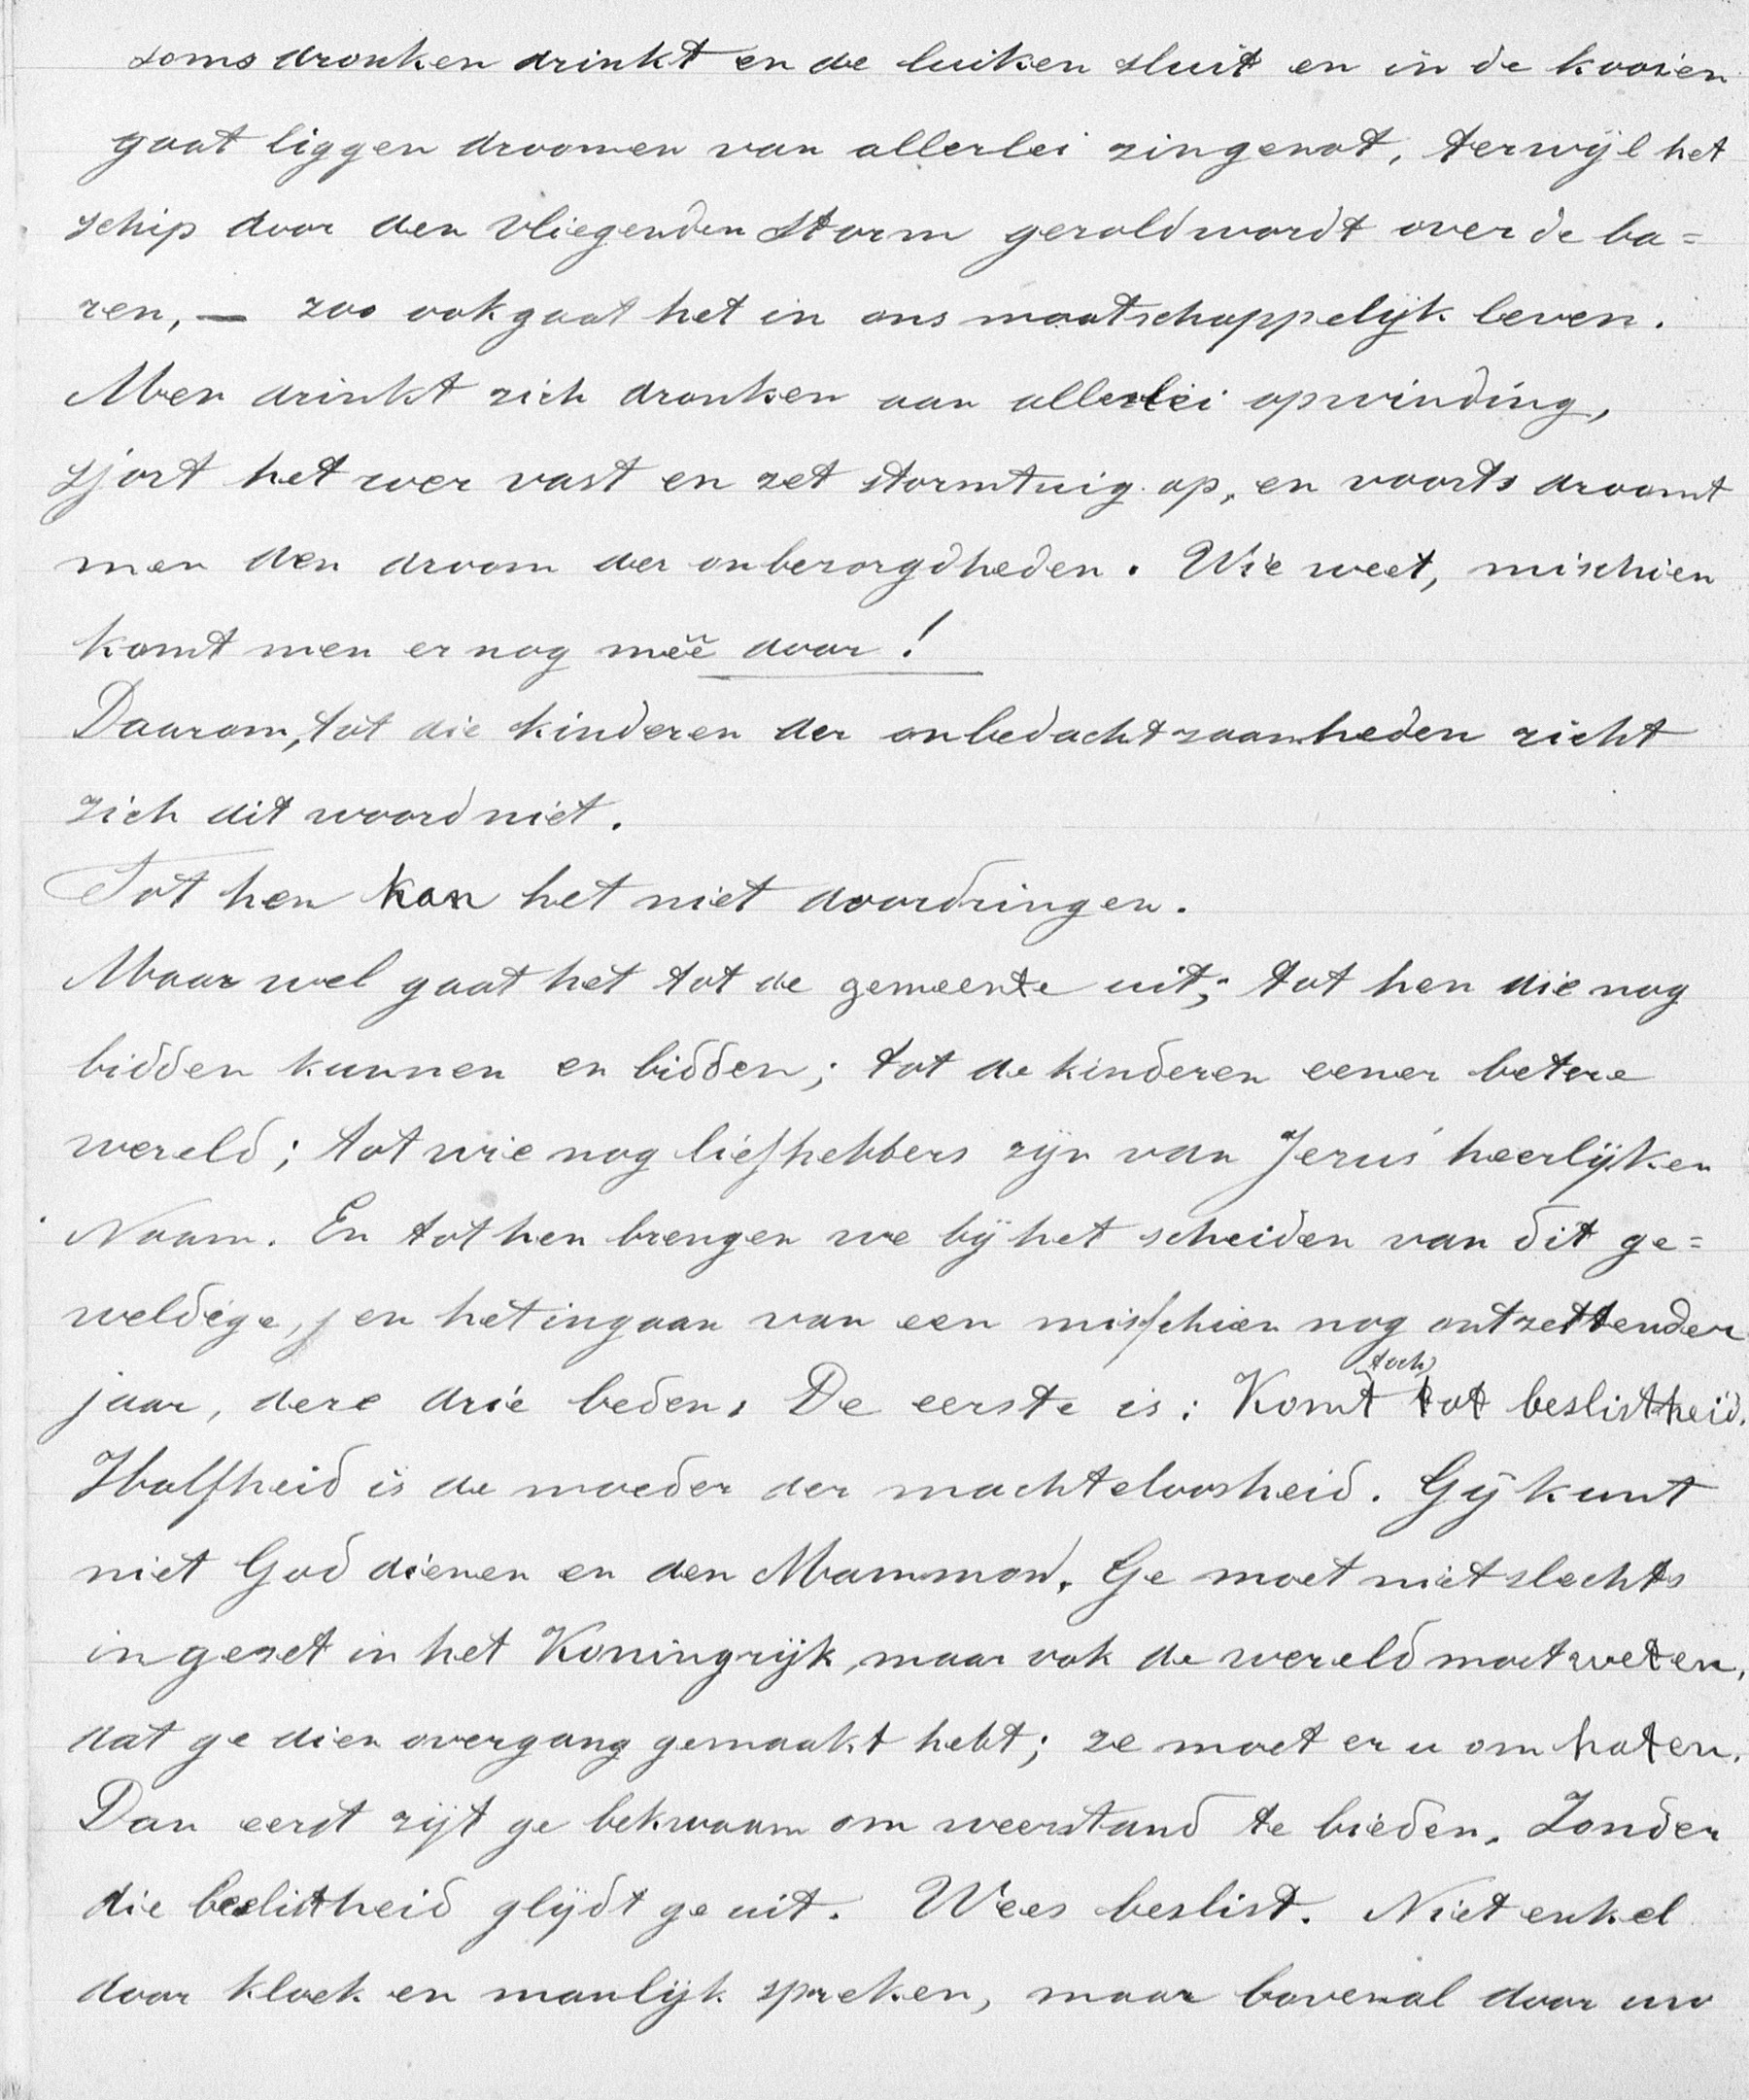 soms dronken drinkt en de luiken sluit en in de kooien
gaat liggen droomen van allerlei zingenot, terwijl het
schip door den vliegenden storm gerold wordt over de ba=
ren, — zoo ook gaat het in ons maatschappelijk leven.
Men drinkt zich dronken aan allerlei opwinding,
sjort het roer vast en zet stormtuig op, en voorts droomt
men den droom der onbezorgdheden. Wie weet, mischien
komt men er nog mëê door!
Daarom, tot die kinderen der onbedachtzaamheden richt
zich dit woord niet.
Tot hen kan het niet doordringen.
Maar wel gaat het tot de gemeente uit; tot hen die nog
bidden kunnen en bidden; tot de kinderen eener betere
wereld; tot wie nog liefhebbers zijn van Jezus' heerlijken
Naam. En tot hen brengen we bij het scheiden van dit ge=
weldige, en het ingaan van een misschien nog ontzettender
jaar, deze drie beden. De eerste is: Komt toch tot beslistheid.
Halfheid is de moeder der machteloosheid. Gij kunt
niet God dienen en den Mammon. Ge moet niet slechts
ingezet in het Koningrijk, maar ook de wereld moet weten,
dat ge dien overgang gemaakt hebt; ze moet er u om haten.
Dan eerst zijt ge bekwaam om weerstand te bieden. Zonder
die beslistheid glijdt ge uit. Wees beslist. Niet enkel
door kloek en manlijk spreken, maar bovenal door uw